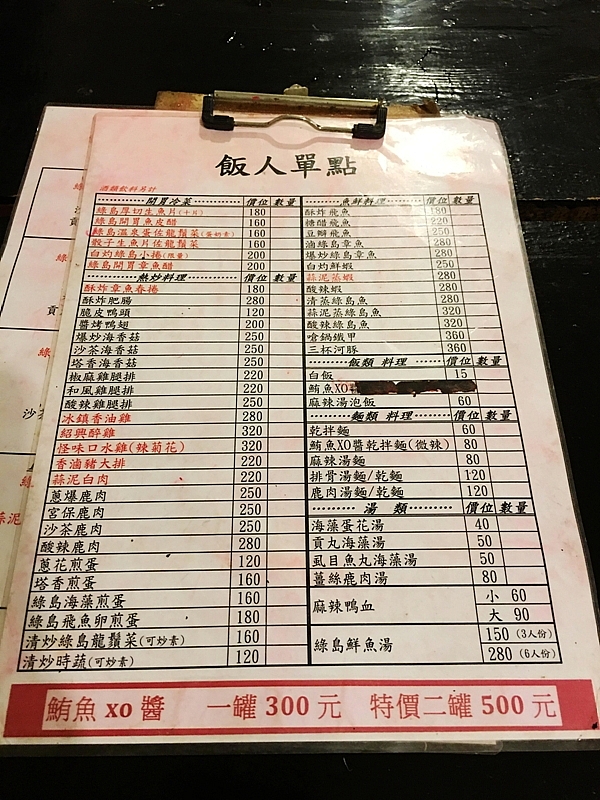 飯人單點
酒類飲料另計
開胃冷菜 價位 數量
綠島厚切生魚片(十片) 180
綠島開胃魚皮醋 160
綠島溫泉蛋佐龍鬚菜(蛋奶素) 160
骰子生魚片佐龍鬚菜 160
白灼綠島小捲(限量) 200
綠島開胃章魚醋 200
熱炒料理 價位 數量
酥炸章魚春捲 180
酥炸肥腸 280
脆皮鴨頭 120
醬烤鴨翅 200
爆炒海香菇 250
沙茶海香菇 250
塔香海香菇 250
椒麻雞腿排 220
和風雞腿排 220
酸辣雞腿排 250
冰鎮香油雞 280
紹興醉雞 320
怪味口水雞(辣菊花) 320
香滷豬大排 220
蒜泥白肉 220
蔥爆鹿肉 250
宮保鹿肉 250
沙茶鹿肉 250
酸辣鹿肉 280
蔥花煎蛋 120
塔香煎蛋 160
綠島海藻煎蛋 160
綠島飛魚卵煎蛋 180
清炒綠島龍鬚菜(可炒素) 160
清炒時蔬(可炒素) 120
魚鮮料理 價位 數量
酥炸飛魚 180
糖醋飛魚 220
豆瓣飛魚 250
滷綠島章魚 280
爆炒綠島章魚 280
白灼鮮蝦 250
蒜泥蒸蝦 280
酸辣蝦 280
清蒸綠島魚 280
蒜泥蒸綠島魚 320
酸辣綠島魚 320
嗆鍋鐵甲 360
三杯河豚 360
飯類 料理 價位 數量
白飯 15
鮪魚XO
麻辣湯泡飯 60
麵類 料理 價位 數量
乾拌麵 60
鮪魚XO醬乾拌麵(微辣) 80
麻辣湯麵 80
排骨湯麵/乾麵 120
鹿肉湯麵/乾麵 120
湯 類 價位 數量
海藻蛋花湯 40
貢丸海藻湯 50
虱目魚丸海藻湯 50
薑絲鹿肉湯 80
麻辣鴨血 小 60
大 90
綠島鮮魚湯 150 (3人份)
280 (6人份)
鮪魚 xo 醬 一罐 300 元 特價二罐 500 元